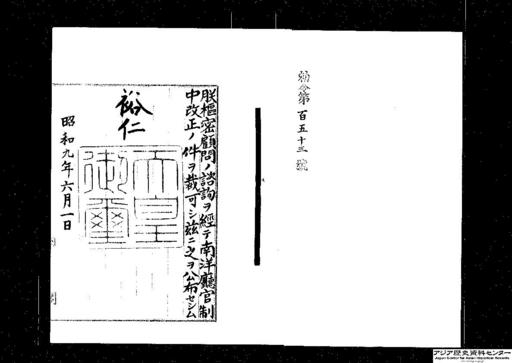 勅令第百五十三號
朕樞密顧問ノ諮詢ヲ經テ南洋廳官制
中改正ノ件ヲ裁可シ茲ニ之ヲ公布セシム
裕仁
天皇
御璽
昭和九年六月一日
アジア歴史資料センター
Japan Center for Asian Historical Records